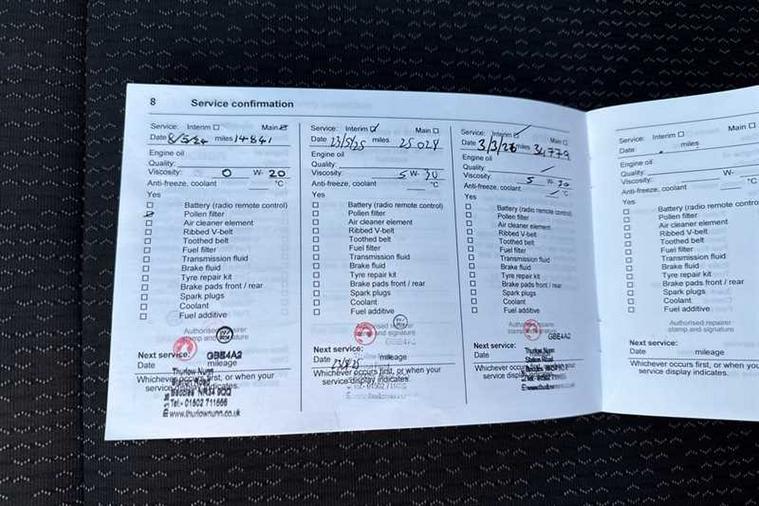 8 Service confirmation
Service: Interim ☐ Main ☑
Date 8/5/24 miles 14841
Engine oil
Quality:
Viscosity: 0 W- 20
Anti-freeze, coolant °C
Yes
☐ Battery (radio remote control)
☑ Pollen filter
☐ Air cleaner element
☐ Ribbed V-belt
☐ Toothed belt
☐ Fuel filter
☐ Transmission fluid
☐ Brake fluid
☐ Tyre repair kit
☐ Brake pads front / rear
☐ Spark plugs
☐ Coolant
☐ Fuel additive
Authorised repairer
stamp and signature
GBE4A2
Next service:
Date mileage
Whichever occurs first, or when your
service display indicates.
Thurlow Nunn
Beccles NR34 9QQ
Tel:- 01502 711666
www.thurlownunn.co.uk
Service: Interim ☑ Main ☐
Date 23/5/25 miles 25024
Engine oil
Quality:
Viscosity: 5 W- 30
Anti-freeze, coolant °C
Yes
☐ Battery (radio remote control)
☐ Pollen filter
☐ Air cleaner element
☐ Ribbed V-belt
☐ Toothed belt
☐ Fuel filter
☐ Transmission fluid
☐ Brake fluid
☐ Tyre repair kit
☐ Brake pads front / rear
☐ Spark plugs
☐ Coolant
☐ Fuel additive
Authorised repairer
stamp and signature
GBE4A2
Next service:
Date mileage
Whichever occurs first, or when your
service display indicates.
Service: Interim ☑ Main ☐
Date 3/3/26 miles 34779
Engine oil
Quality:
Viscosity: 5 W- 30
Anti-freeze, coolant °C
Yes
☐ Battery (radio remote control)
☐ Pollen filter
☐ Air cleaner element
☐ Ribbed V-belt
☐ Toothed belt
☐ Fuel filter
☐ Transmission fluid
☐ Brake fluid
☐ Tyre repair kit
☐ Brake pads front / rear
☐ Spark plugs
☐ Coolant
☐ Fuel additive
Authorised repairer
stamp and signature
GBE4A2
Next service:
Date mileage
Thurlow Nunn
Whichever occurs first, or when your
service display indicates.
www.thurlownunn.co.uk
Service: Interim ☐ Main ☐
Date miles
Engine oil
Quality:
Viscosity: W-
Anti-freeze, coolant °C
Yes
☐ Battery (radio remote
☐ Pollen filter
☐ Air cleaner element
☐ Ribbed V-belt
☐ Toothed belt
☐ Fuel filter
☐ Transmission fluid
☐ Brake fluid
☐ Tyre repair kit
☐ Brake pads front / rear
☐ Spark plugs
☐ Coolant
☐ Fuel additive
Authorised repairer
stamp and signature
Next service:
Date mileage
Whichever occurs first, or when your
service display indicates.